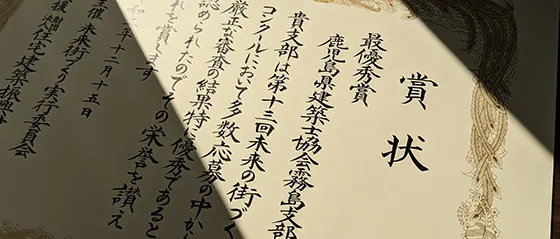 賞状
最優秀賞
鹿児島県建築士協会霧島支部
貴支部は第十三回未来の街づく
コンクールにおいて多数応募の中から
厳正な審査の結果特に優秀であると
認められたのでその栄誉を讃え
れを賞します
年十二月十五日
主催 未来街づくり実行委員会
後援 住宅建築振興